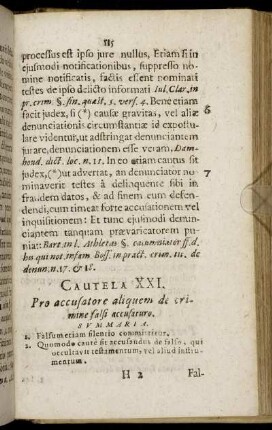 115
processus est ipso jure nullus, Etiam si in
ejusmodi notificationibus, suppresso no-
mine notificatis, factis essent nominati
testes de ipso delicto informati Iul. Clar. in
pr. crim. §. fin. quæst. 5. vers. 4. Bene etiam
facit judex, si (*) causæ gravitas, vel aliæ
6
denunciationis circumstantiæ id expostu-
lare videntur, ut adstringat denunciantem
jurare, denunciationem esse veram, Dam-
houd. dict. loc. n. 11. In eo etiam cautus sit
judex, (*) ut advertat, an denunciator no-
7
minaverit testes à delinquente sibi in-
fraudem datos, & ad finem eum defend-
endi, cum timeat forte accusationem vel
inquisitionem: Et tunc ejusmodi denun-
ciantem tanquam prævaricatorem pu-
niat: Bart. in l. Athletas §. calumniator ff. d.
his qui not. infam. Boss. in pract. crim. tit. de
denun. n. 17. & 18.
CAUTELA XXI.
Pro accusatore aliquem de cri-
mine falsi accusaturo.
SUMMARIA.
1. Falsum etiam silentio committitur.
2. Quomodo cautè sit accusandus de falso, qui
occultavit testamentum, vel aliud instru-
mentum.
H 2
Fal-